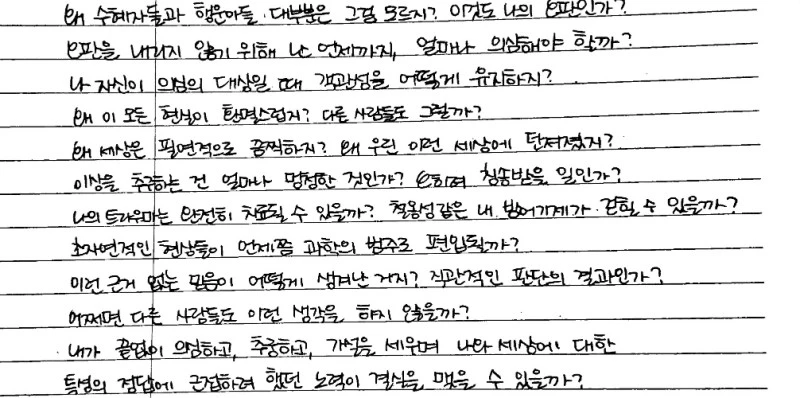 왜 수혜자들과 행운아들 대부분은 그걸 모르지? 이것도 나의 오판인가?
오판을 내리지 않기 위해 난 언제까지, 얼마나 의심해야 할까?
나 자신이 의심의 대상일 때 객관성을 어떻게 유지하지?
왜 이 모든 현실이 환멸스럽지? 다른 사람들도 그럴까?
왜 세상은 필연적으로 끔찍하지? 왜 우린 이런 세상에 던져졌지?
이상을 추구하는 건 얼마나 멍청한 것인가? 오히려 칭송받을 일인가?
나의 트라우마는 완전히 치료될 수 있을까? 철옹성같은 내 방어기제가 걷힐 수 있을까?
초자연적인 현상들이 언제쯤 과학의 범주로 편입될까?
이런 근거 없는 믿음이 어떻게 생겨난 거지? 직관적인 판단의 결과인가?
어쩌면 다른 사람들도 이런 생각을 하지 않을까?
내가 끝없이 의심하고, 추궁하고, 가설을 세우며 나와 세상에 대한
특성의 정답에 근접하려 했던 노력이 결실을 맺을 수 있을까?